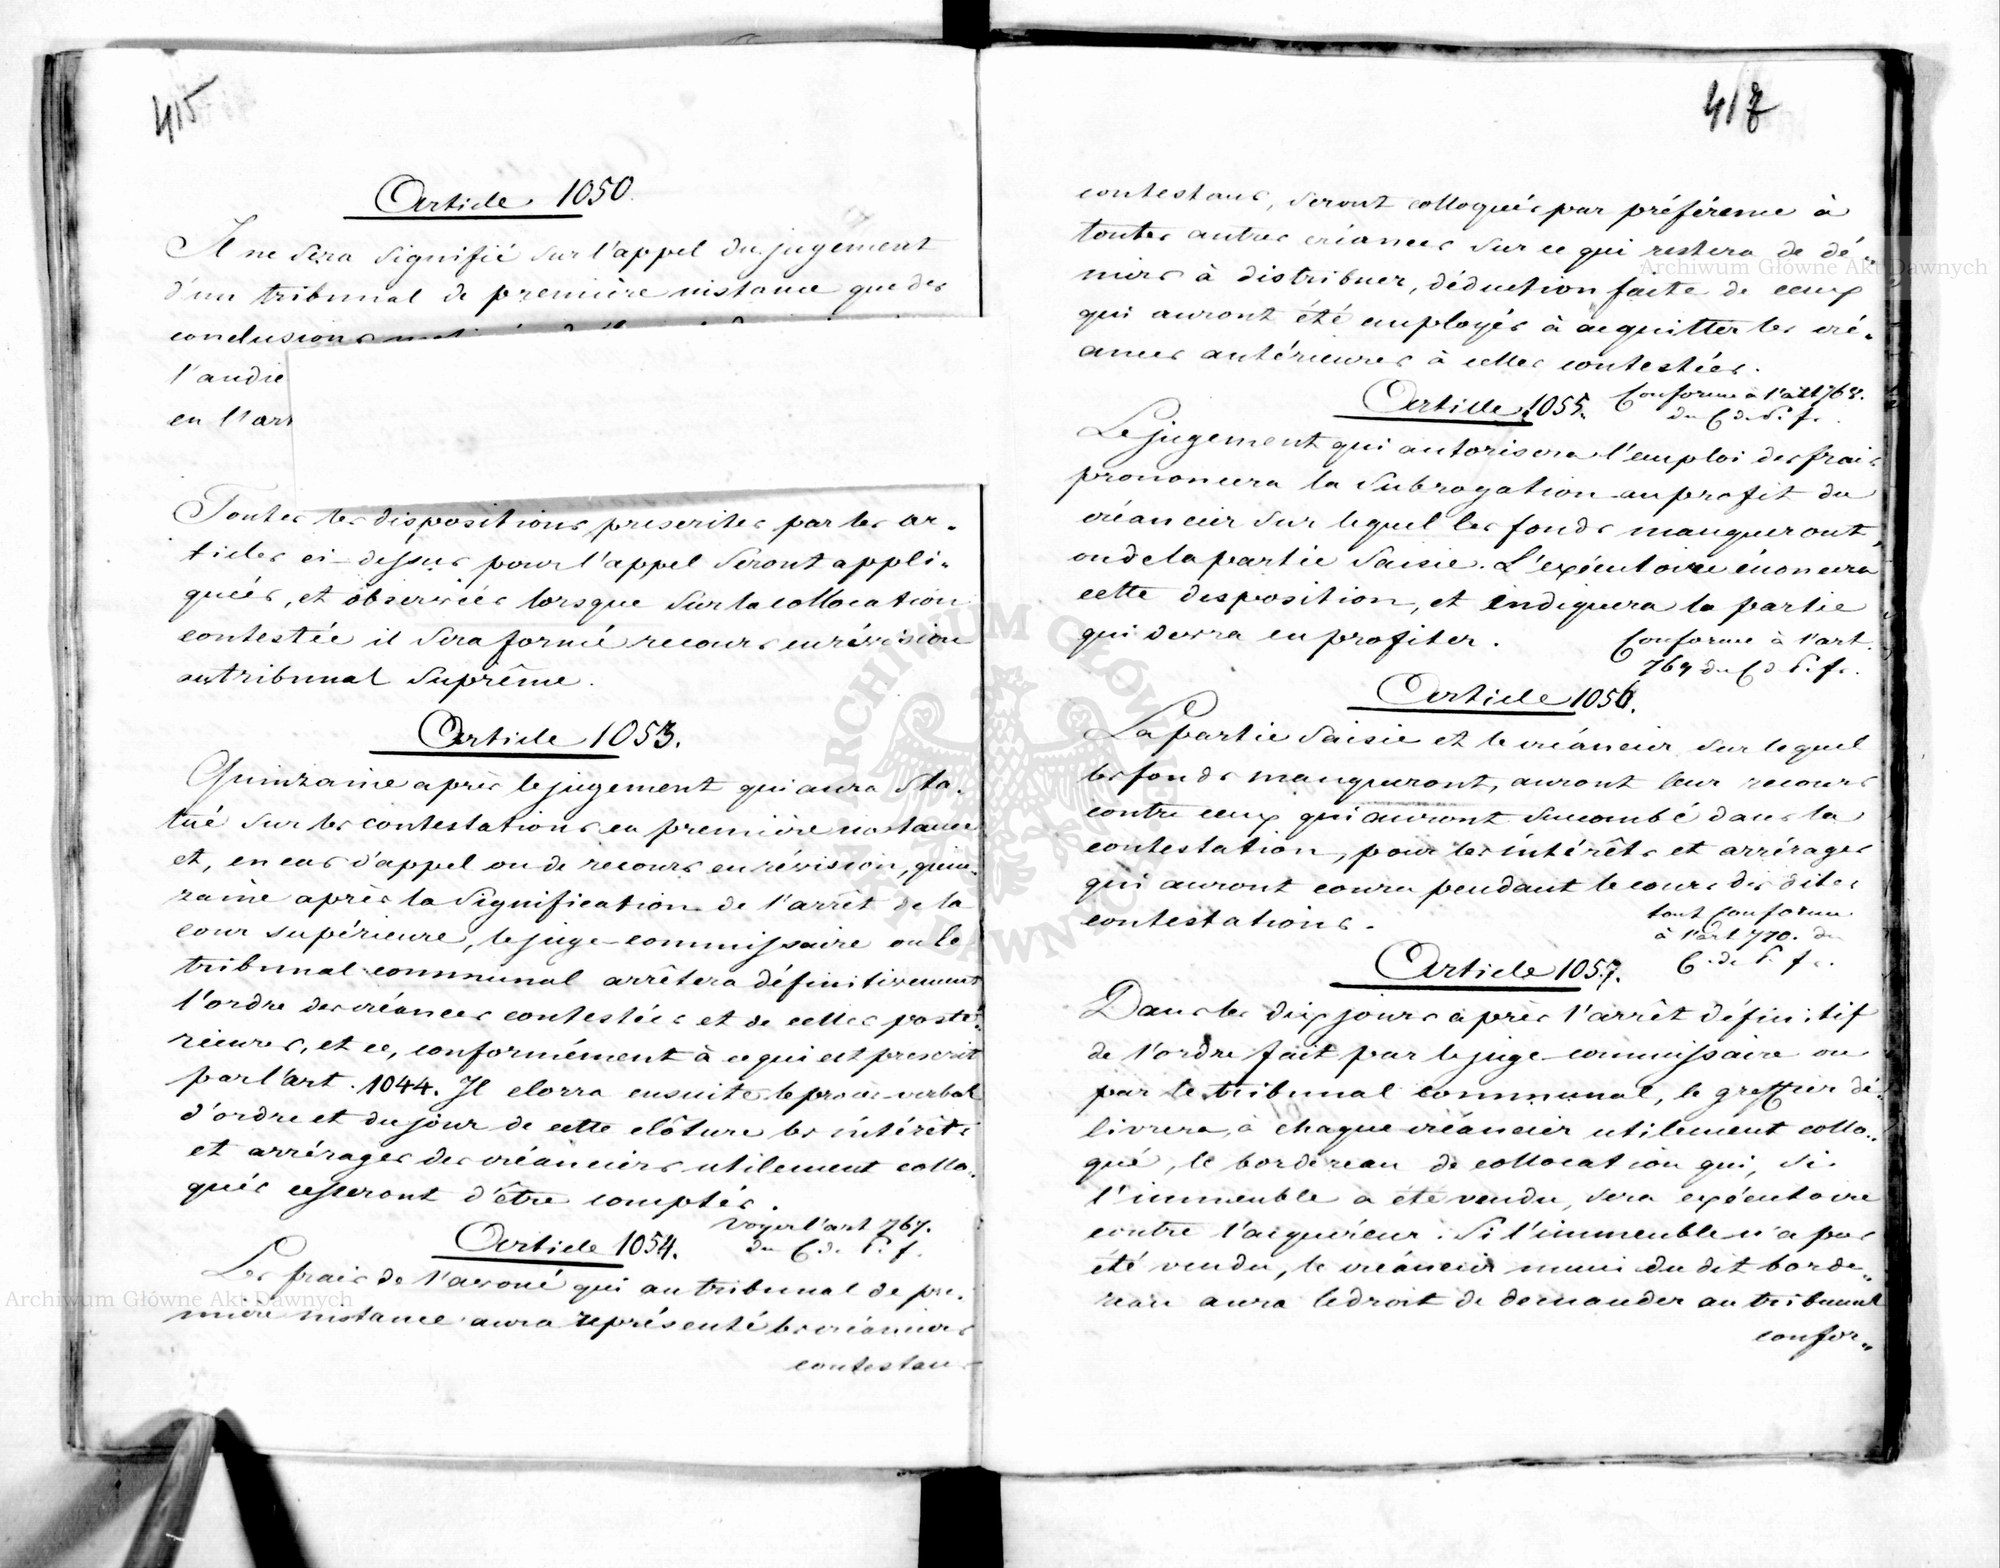 415
Article 1050.
Il ne sera signifié sur l'appel du jugement
d'un tribunal de première instance que des
conclusions
l'audie
en l'art
Toutes les dispositions prescrites par les ar-
ticles ci-dessus pour l'appel seront appli-
quées, et observées lorsque sur la collocation
contestée il sera formé recours en révision
au tribunal Suprême.
Article 1053.
Quinzaine après le jugement qui aura sta-
tué sur les contestations en première instance
et, en cas d'appel ou de recours en révision, quin-
zaine après la signification de l'arrêt de la
cour supérieure, le juge-commissaire ou le
tribunal communal arrêtera définitivement
l'ordre des créances contestées et de celles posté-
rieures, et ce, conformément à ce qui est prescrit
par l'art. 1044. Il clorra ensuite le procès-verbal
d'ordre et du jour de cette clôture les intérêts
et arrérages des créanciers utilement collo-
qués cesseront d'être comptés.
Voyez l'art 767.
du C. d. P. f.
Article 1054.
Les frais de l'avoué qui au tribunal de pre-
mière instance aura représenté les créanciers
contestans
417
contestans, seront colloqués par préférence à
toutes autres créances sur ce qui restera de dé-
niers à distribuer, déduction faite de ceux
qui auront été employés à acquitter les cré-
ances antérieures à celles contestées.
Conforme à l'art 768.
du C. d. P. f.
Article 1055.
Le jugement qui autorisera l'emploi des frais
prononcera la subrogation au profit du
créancier sur lequel les fonds manqueront,
ou de la partie saisie. L'exécutoire énoncera
cette disposition, et indiquera la partie
qui devra en profiter.
Conforme à l'art.
769 du C. d. P. f.
Article 1056.
La partie saisie et le créancier sur lequel
les fonds manqueront, auront leur recours
contre ceux qui auront succombé dans la
contestation, pour les intérêts et arrérages
qui auront couru pendant le cours des dites
contestations.
tout conforme
à l'art 770. du
C. de P. f.
Article 1057.
Dans les dix jours après l'arrêt définitif
de l'ordre fait par le juge-commissaire ou
par le tribunal communal, le greffier dé-
livrera, à chaque créancier utilement collo-
qué, le bordereau de collocation qui, si
l'immeuble a été vendu, sera exécutoire
contre l'acquéreur. Si l'immeuble n'a pas
été vendu, le créancier muni du dit borde-
reau aura le droit de demander au tribunal
confor-
Archiwum Główne Akt Dawnych
Archiwum Główne Akt Dawnych
ARCHIWUM GŁÓWNE AKT DAWNYCH